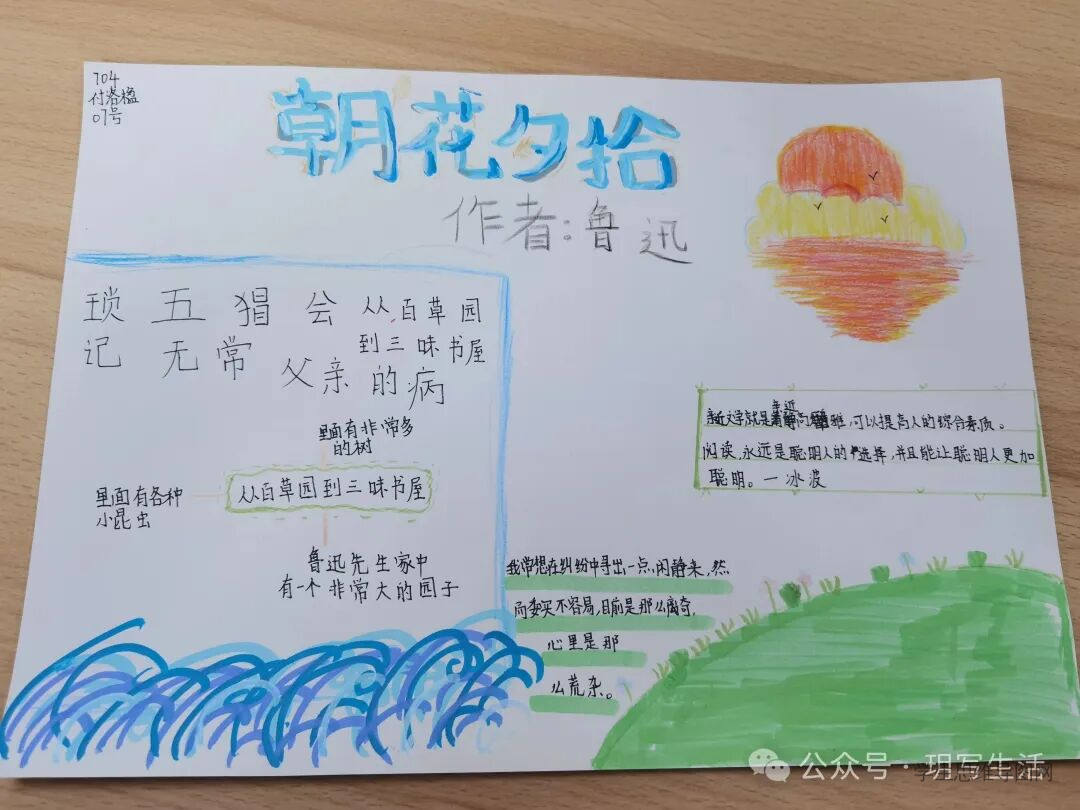 704
付洛楹
07号
朝花夕拾
作者:鲁迅
琐记 五猖会 从百草园到三味书屋
无常 父亲的病
里面有非常多
的树
里面有各种
小昆虫
从百草园到三味书屋
鲁迅先生家中
有一个非常大的园子
亲近
亲近文学就是高雅,可以提高人的综合素质。
阅读,永远是聪明人的选择,并且能让聪明人更加
聪明。一冰波
我常想在纠纷中寻出一点闲静来,然
而委实不容易,目前是那么离奇,
心里是那
么荒杂。
公众号·玥写生活
学生思维导图网